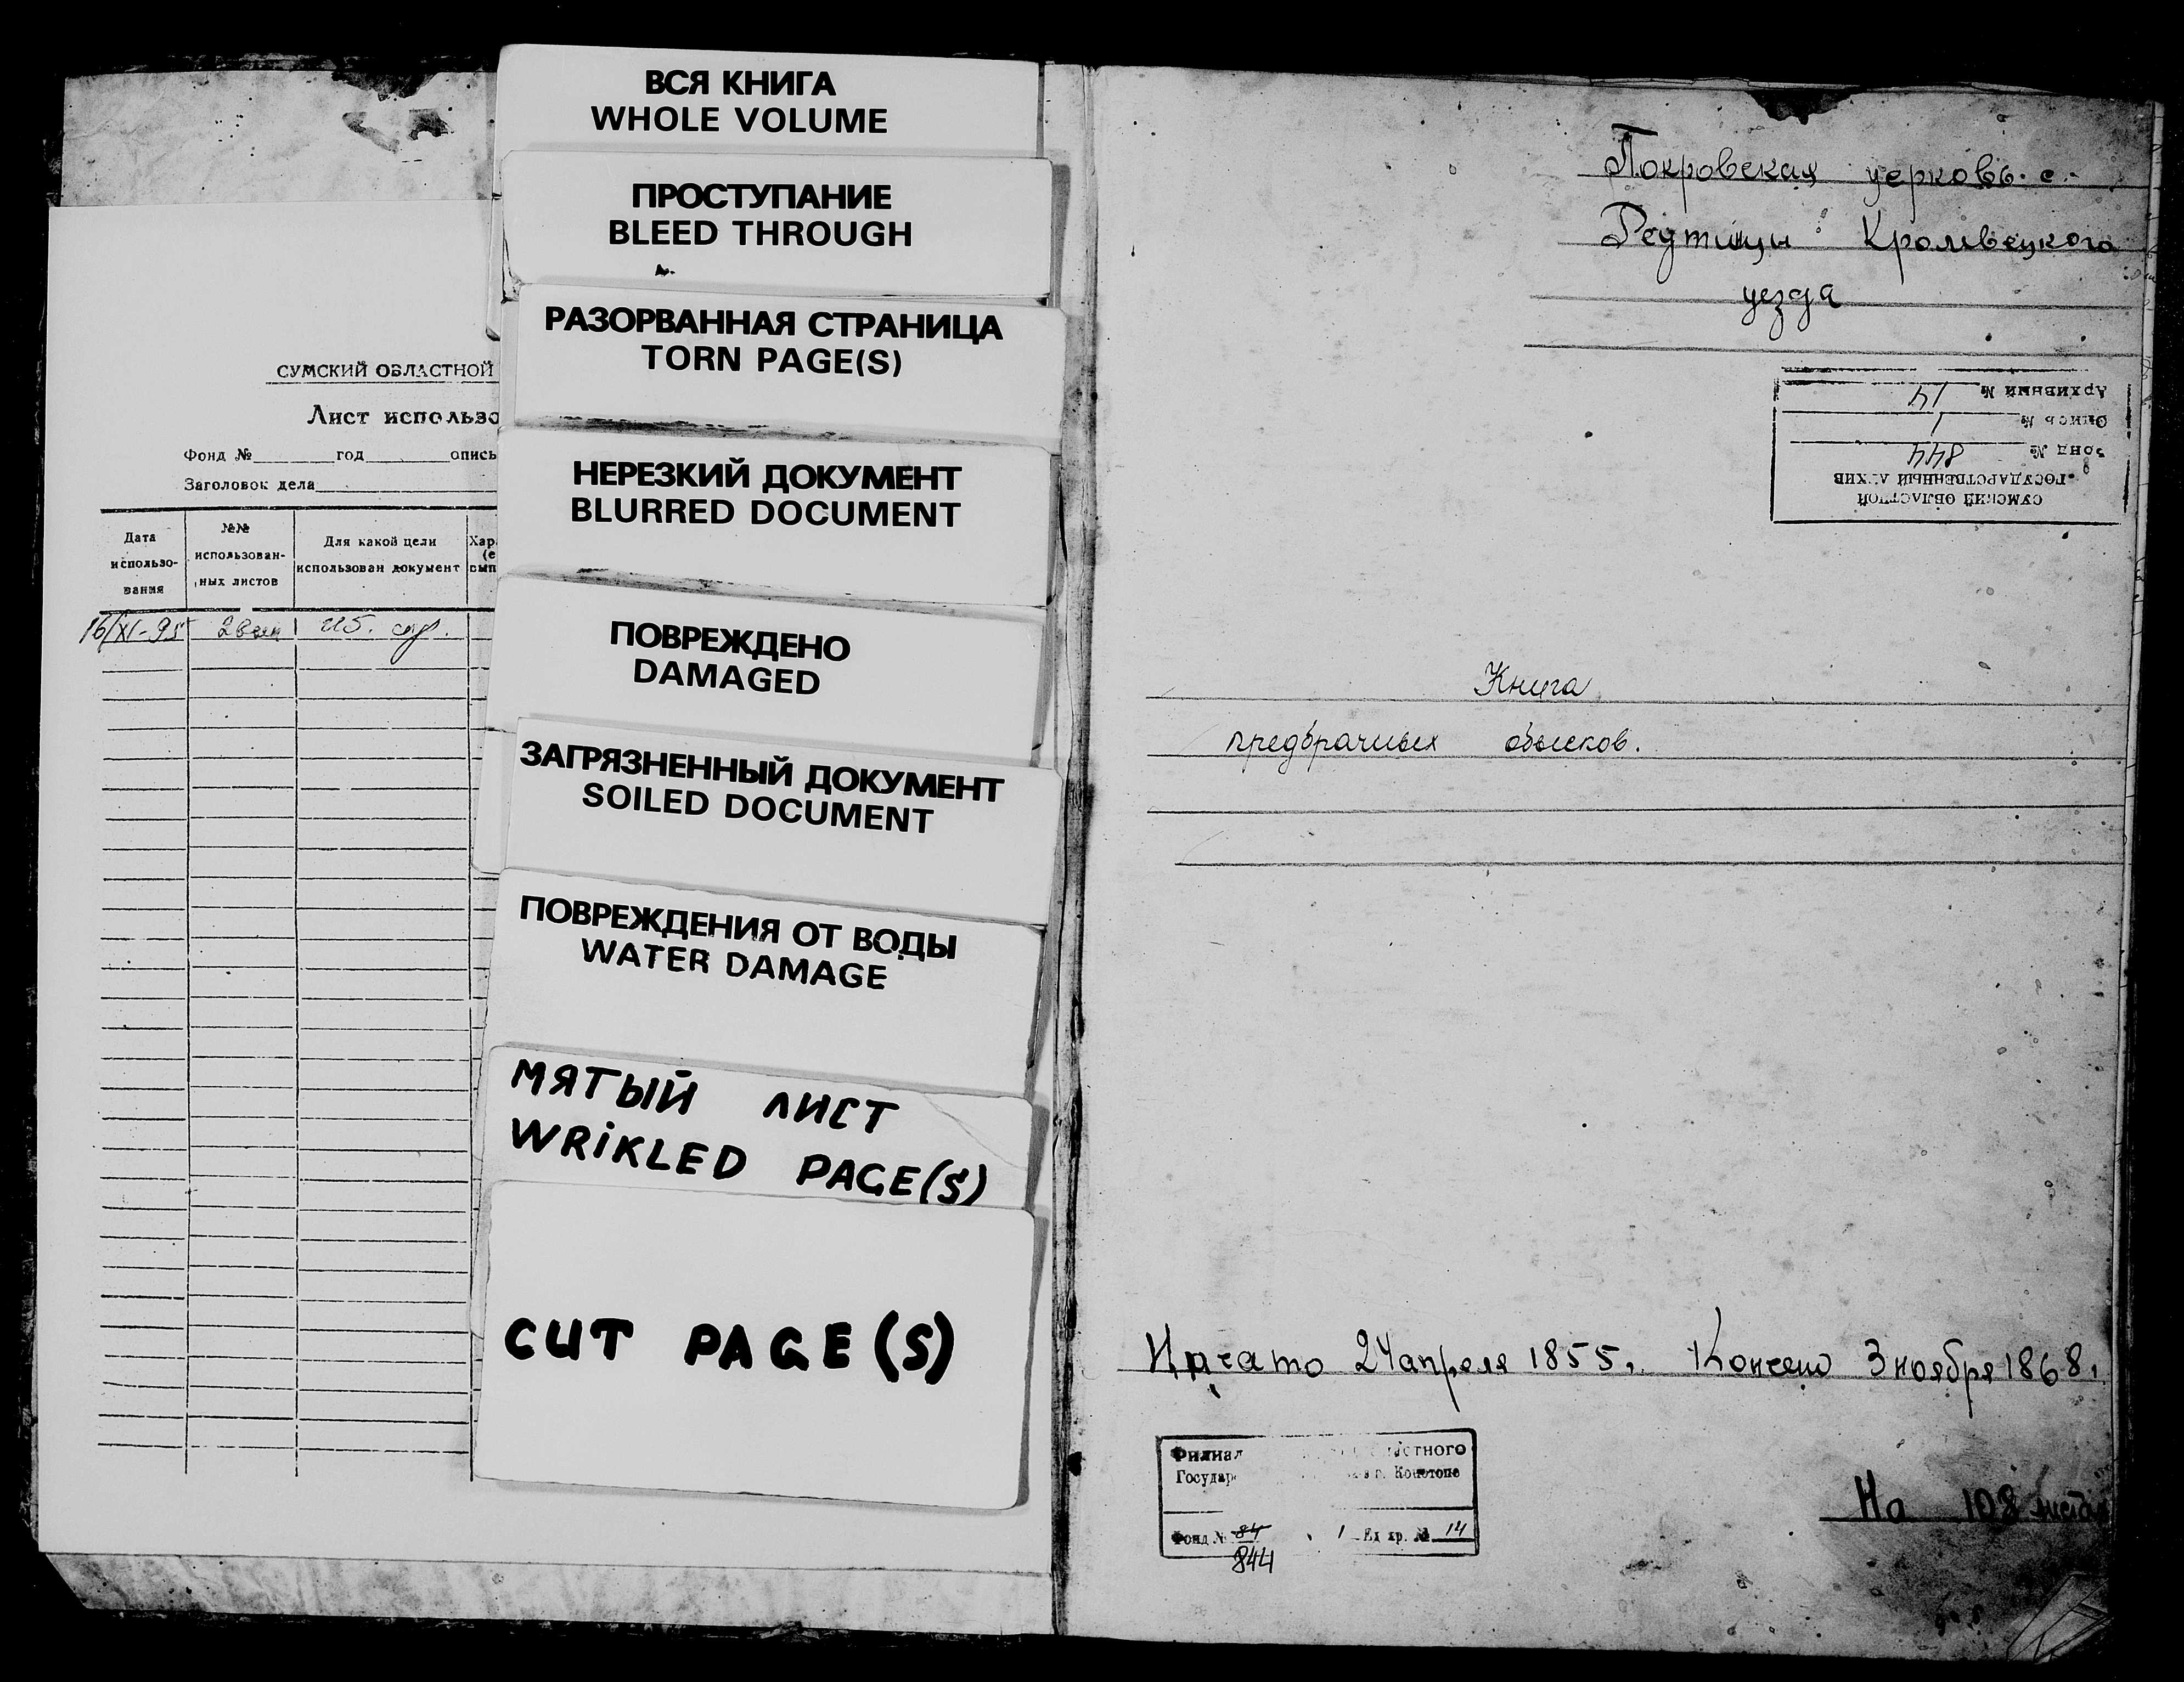 СУМСКИЙ ОБЛАСТНОЙ
Лист использо
Фонд № год опись
Заголовок дела
Дата использо-вания
№№ использован-ных листов
Для какой цели использован документ
Хар
(е
вып
16/XI-95
ВСЯ КНИГА
WHOLE VOLUME
ПРОСТУПАНИЕ
BLEED THROUGH
РАЗОРВАННАЯ СТРАНИЦА
TORN PAGE(S)
НЕРЕЗКИЙ ДОКУМЕНТ
BLURRED DOCUMENT
ПОВРЕЖДЕНО
DAMAGED
ЗАГРЯЗНЕННЫЙ ДОКУМЕНТ
SOILED DOCUMENT
ПОВРЕЖДЕНИЯ ОТ ВОДЫ
WATER DAMAGE
МЯТЫЙ ЛИСТ
WRIKLED PAGE(S)
CUT PAGE(S)
Покровская церковь с.
Редтицы Кролевецкого
уезда
СУМСКИЙ ОБЛАСТНОЙ
ГОСУДАРСТВЕННЫЙ АРХИВ
Фонд № 844
Опись № 1
Архивный № 14
Книга
предбрачных обысков.
Начато 24 апреля 1855, Кончено 3 ноября 1868,
Филиал стного
Государ г. Конотопе
Фонд № 84 1 Ед хр. № 14
844
На 108 листах